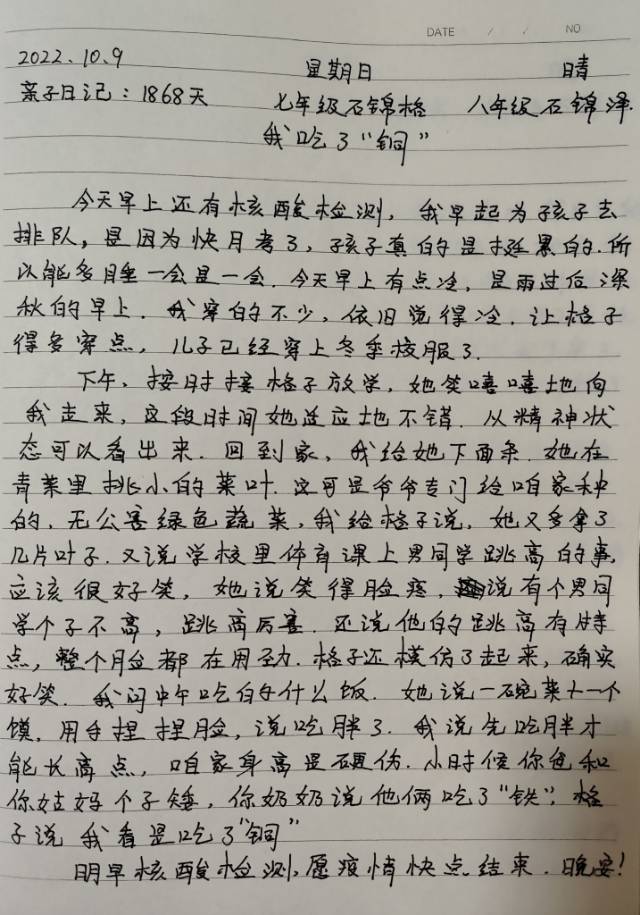 DATE / / NO
2022.10.9 星期日 晴
亲子日记：1868天 七年级石锦格 八年级石锦泽
我吃了“铜”
今天早上还有核酸检测，我早起为孩子去
排队，是因为快月考了，孩子真的是挺累的.所
以能多睡一会是一会.今天早上有点冷，是雨过后深
秋的早上.我穿的不少，依旧觉得冷.让格子
得多穿点，儿子已经穿上冬季校服了.
下午，按时接格子放学，她笑嘻嘻地向
我走来，这段时间她适应地不错.从精神状
态可以看出来.回到家，我给她下面条.她在
青菜里挑小的菜叶.这可是爷爷专门给咱家种
的，无公害绿色蔬菜，我给格子说，她又多拿了
几片叶子.又说学校里体育课上男同学跳高的事，
应该很好笑，她说笑得脸疼，说有个男同
学个子不高，跳高厉害.还说他的跳高有特
点，整个脸都在用劲.格子还模仿了起来，确实
好笑.我问中午吃的什么饭.她说一碗菜十一个
馍，用手捏捏脸，说吃胖了.我说先吃胖才
能长高点，咱家身高是硬伤.小时候你爸和
你姑妈个子矮，你奶奶说他俩吃了“铁”，格
子说我看是吃了“铜”
明早核酸检测，愿疫情快点结束.晚安！